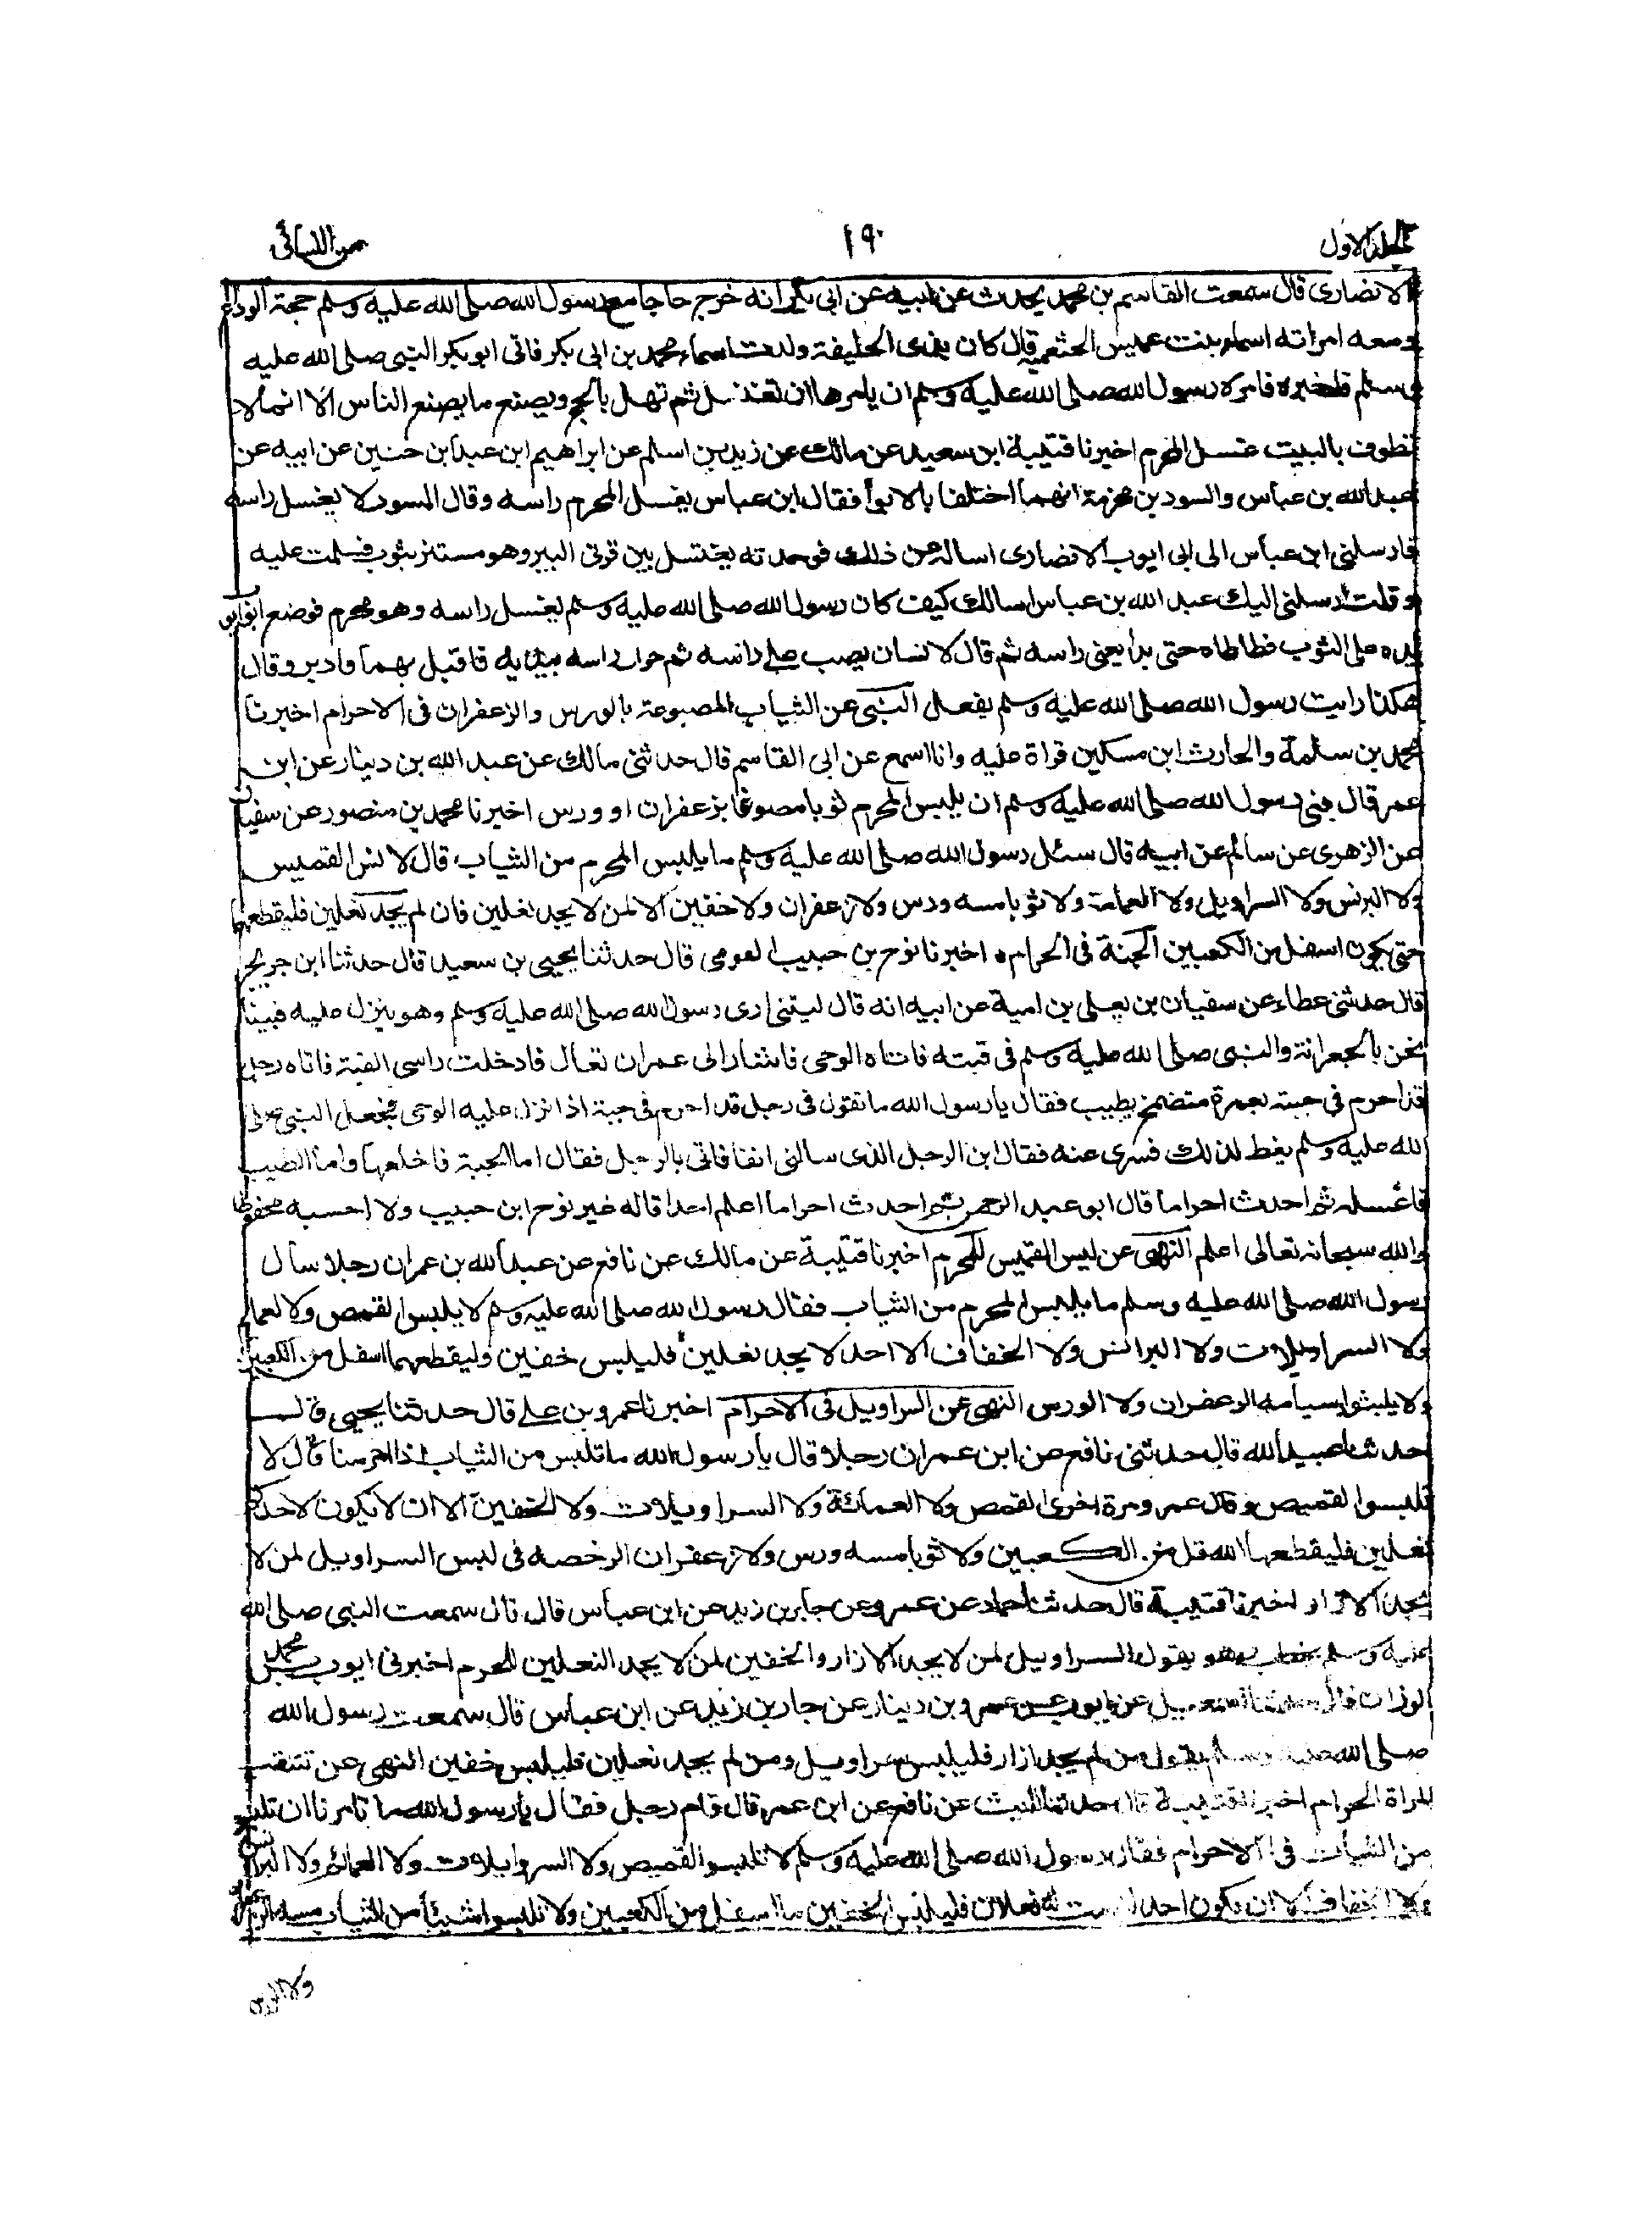 الجلد الاول
١٩٠
من النسائى
الانصارى قال سمعت القاسم بن محمد يحدث عن ابيه عن ابى بكر انه خرج حاجا مع رسول الله صلى الله عليه وسلم حجة الوداع
ومعه امراته اسماء بنت عميس الخثعمية قال كان بذى الحليفة ولدت اسماء محمد بن ابى بكر فاتى ابو بكر النبى صلى الله عليه
وسلم فاخبره فامره رسول الله صلى الله عليه وسلم ان يامرها ان تغتسل ثم تهل بالحج ويصنع ما يصنع الناس الا انها لا
تطوف بالبيت غسل المحرم اخبرنا قتيبة ابن سعيد عن مالك عن زيد بن اسلم عن ابراهيم ابن عبد ابن حنين عن ابيه عن
عبد الله بن عباس والسود بن مخزمة انهما اختلفا بالابوأ فقال ابن عباس يغسل المحرم راسه وقال المسود لا يغسل راسه
فارسلنى ابن عباس الى ابى ايوب الانضارى اساله عن ذلك فوحدته يغتسل بين قرنى البير وهو مستنر بثوب فسلمت عليه
وقلت ارسلنى اليك عبد الله بن عباس اسالك كيف كان رسول الله صلى الله عليه وسلم يغسل راسه وهو محرم فوضع ابو ايو
يده على الثوب فطاطاه حتى بدأ يعنى راسه ثم قال لانسان يصب على راسه ثم حرك راسه بيديه فاقبل بهما وادبر وقال
هكذا رايت رسول الله صلى الله عليه وسلم يفعل النهى عن الثياب المصبوعة بالورس والزعفران فى الاحرام اخبرنا
محمد بن سلمة والحارث ابن مسكين قراة عليه وانا اسمع عن ابى القاسم قال حدثنى مالك عن عبد الله بن دينار عن ابن
عمر قال نهى رسول الله صلى الله عليه وسلم ان يلبس المحرم ثوبا مصبوغا بزعفران او ورس اخبرنا محمد بن منصور عن سفيان
عن الزهرى عن سالم عن ابيه قال سئل رسول الله صلى الله عليه وسلم ما يلبس المحرم من الثياب قال لا القميس
ولا البرنس ولا السراويل ولا العمامة ولا ثوبا مسه ورس ولا زعفران ولا خفين الا لمن لا يجد نغلين فان لم يجد نغلين فليقطعهما
حتى يكون اسفل من الكعبين الجبة فى الحرام ه اخبرنا نوح بن حبيب القومى قال حدثنا يحيى بن سعيد قال حدثنا ابن جريج
قال حدثنى عطاء عن سفيان بن يعلى بن امية عن ابيه انه قال ليتنى ارى رسول الله صلى الله عليه وسلم وهو ينزل عليه فبينا
نحن بالجعرانة والنبى صلى الله عليه وسلم فى قبته فاتاه الوحى فاشار الى عمران تعال فادخلت راسى القبة فاتاه رجل
قد احرم فى جبته بعمرة متضمخ بطيب فقال يا رسول الله ما تقول فى رجل قد احرم فى جبة اذا نزل عليه الوحى فجعل النبى صلى
الله عليه وسلم يغط لذلك فسرى عنه فقال اين الرجل الذى سالنى انفا فاتى بالرجل فقال اما الجبة فاخلعها واما الطيب
فاغسله ثم احدث احراما قال ابو عبد الرحمن ثم احدث احراما اعلم احدا قاله غير نوح ابن حبيب ولا احسبه محفوظا
والله سبحانه تعالى اعلم النهى عن لبس القميس للمحرم اخبرنا قتيبة عن مالك عن نافع عن عبد الله بن عمران رجلا سال
رسول الله صلى الله عليه وسلم ما يلبس المحرم من الثياب فقال رسول الله صلى الله عليه وسلم لا يلبس القمص ولا العمائم
ولا السراويلات ولا البرانس ولا الخفاف الا احد لا يجد نعلين فليلبس خفين وليقطعهما اسفل من الكعبين
ولا يلبثوا سيأمه الزعفران ولا الورس النهى عن السراويل فى الاحرام اخبرنا عمرو بن على قال حدثنا يحيى قال
حدثنا عبيد الله قال حدثنى نافع عن ابن عمر ان رجلا قال يا رسول الله ما تلبس من الثياب اذا احرمنا قال لا
تلبسوا القميص وقال عمرو مرة اخرى القمص ولا العمائة ولا السراويلات ولا الخفين الا ان لا يكون لاحدكم
نعلين فليقطعهما من الكعبين ولا ثوبا مسه ورس ولا زعفران الرخصه فى لبس السراويل لمن لا
يجد الازار اخبرنا قتيبة قال حدثنا حماد عن عمرو عن جابر بن زيد عن ابن عباس قال قال سمعت النبى صلى الله
عليه وسلم يخطب وهو يقول السراويل لمن لا يجد الازار والخفين لمن لا يجد النعلين للمحرم اخبرنى ايوب بن محمد
الوزان قال حدثنا اسمعيل عن ايوب عن عمرو بن دينار عن جابر بن زيد عن ابن عباس قال سمعت رسول الله
صلى الله عليه وسلم يقول من لم يجد ازار فليلبس سراويل ومن لم يجد نعلين فليلبس خفين النهى عن تنتقب
المراة الحرام اخبرنا قتيبة قال حدثنا الليث عن نافع عن ابن عمر قال قام رجل فقال يا رسول الله ما تامرنا ان تلبس
من الثياب فى الاحرام فقال رسول الله صلى الله عليه وسلم لا تلبسوا القميص ولا السراويلات ولا العمائم ولا البرانس
ولا الخفاف الا ان يكون احد ليست له نعلان فليلبس الخفين ما اسفل من الكعبين ولا تلبسوا شيئا من الثياب مسه الزعفران
ولا الورس